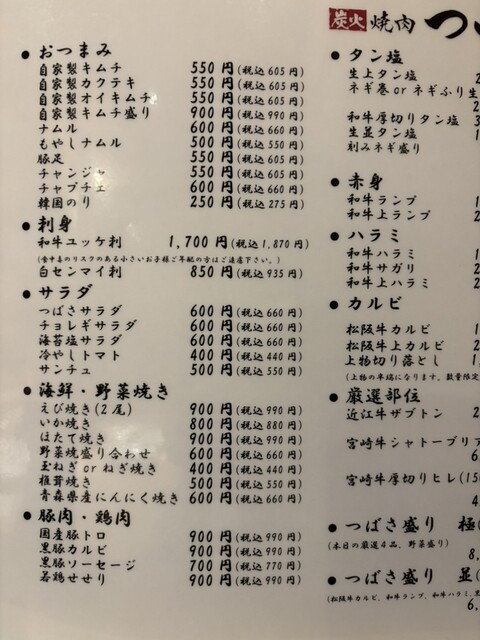 ● おつまみ
自家製キムチ 550 円(税込 605 円)
自家製カクテキ 550 円(税込 605 円)
自家製オイキムチ 550 円(税込 605 円)
自家製キムチ盛り 900 円(税込 990 円)
ナムル 600 円(税込 660 円)
もやしナムル 500 円(税込 550 円)
豚足 550 円(税込 605 円)
チャンジャ 550 円(税込 605 円)
チャプチェ 600 円(税込 660 円)
韓国のり 250 円(税込 275 円)
● 刺身
和牛ユッケ刺 1,700 円(税込 1,870 円)
(食中毒のリスクのある小さいお子様ご年配の方はご遠慮下さい。)
白センマイ刺 850 円(税込 935 円)
● サラダ
つばさサラダ 600 円(税込 660 円)
チョレギサラダ 600 円(税込 660 円)
海苔塩サラダ 600 円(税込 660 円)
冷やしトマト 400 円(税込 440 円)
サンチュ 500 円(税込 550 円)
● 海鮮・野菜焼き
えび焼き(2尾) 900 円(税込 990 円)
いか焼き 800 円(税込 880 円)
ほたて焼き 900 円(税込 990 円)
野菜焼盛り合わせ 600 円(税込 660 円)
玉ねぎ or ねぎ焼き 400 円(税込 440 円)
椎茸焼き 500 円(税込 550 円)
青森県産にんにく焼き 600 円(税込 660 円)
● 豚肉・鶏肉
国産豚トロ 900 円(税込 990 円)
黒豚カルビ 900 円(税込 990 円)
黒豚ソーセージ 700 円(税込 770 円)
若鶏せせり 900 円(税込 990 円)
炭火 焼肉 つ
● タン塩
生上タン塩 2
ネギ巻 or ネギふり生
和牛厚切りタン塩 3
生並タン塩 1
刻みネギ盛り
● 赤身
和牛ランプ 1
和牛上ランプ 2
● ハラミ
和牛ハラミ 1
和牛サガリ 2
和牛上ハラミ 2
● カルビ
松阪牛カルビ 1
松阪牛上カルビ 2
上物切り落とし 1,
(上物の半端になります。数量限定
● 厳選部位
近江牛ザブトン 2
宮崎牛シャトーブリア
6
宮崎牛厚切りヒレ(150
4
● つばさ盛り 極(
(本日の厳選4品、野菜盛り)
8,
● つばさ盛り 並(
(松阪牛カルビ、和牛ランプ、和牛ハラミ、黒
6,